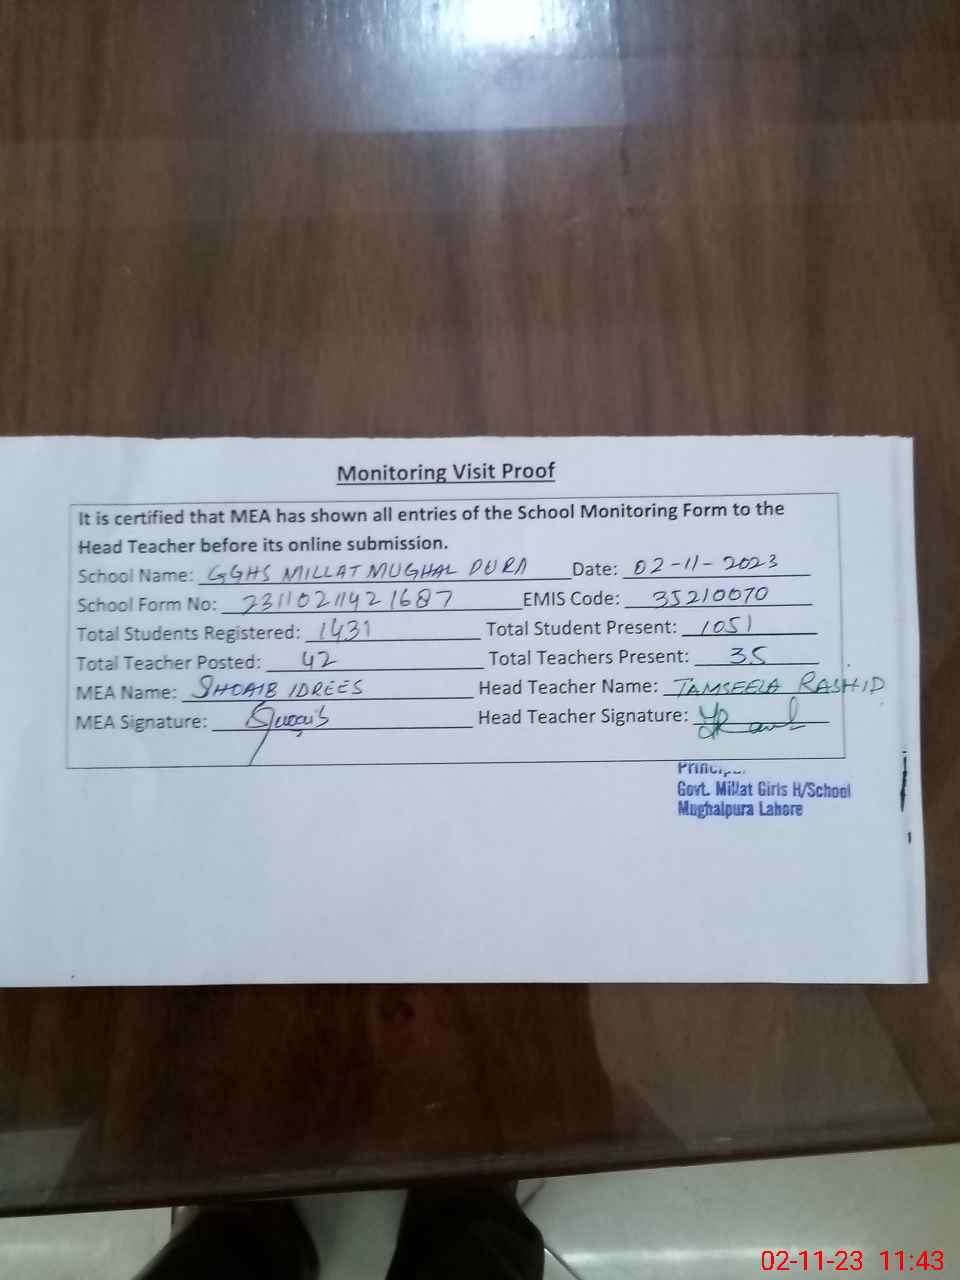 Monitoring Visit Proof
It is certified that MEA has shown all entries of the School Monitoring Form to the
Head Teacher before its online submission.
School Name: GGHS MILLAT MUGHAL PURA Date: 02-11-2023
School Form No: 23110211421687 EMIS Code: 35210070
Total Students Registered: 1431 Total Student Present: 1051
Total Teacher Posted: 42 Total Teachers Present: 35
MEA Name: SHOAIB IDREES Head Teacher Name: TAMSEELA RASHID
MEA Signature: Head Teacher Signature:
Govt. Millat Girls H/School
Mughalpura Lahore
02-11-23 11:43